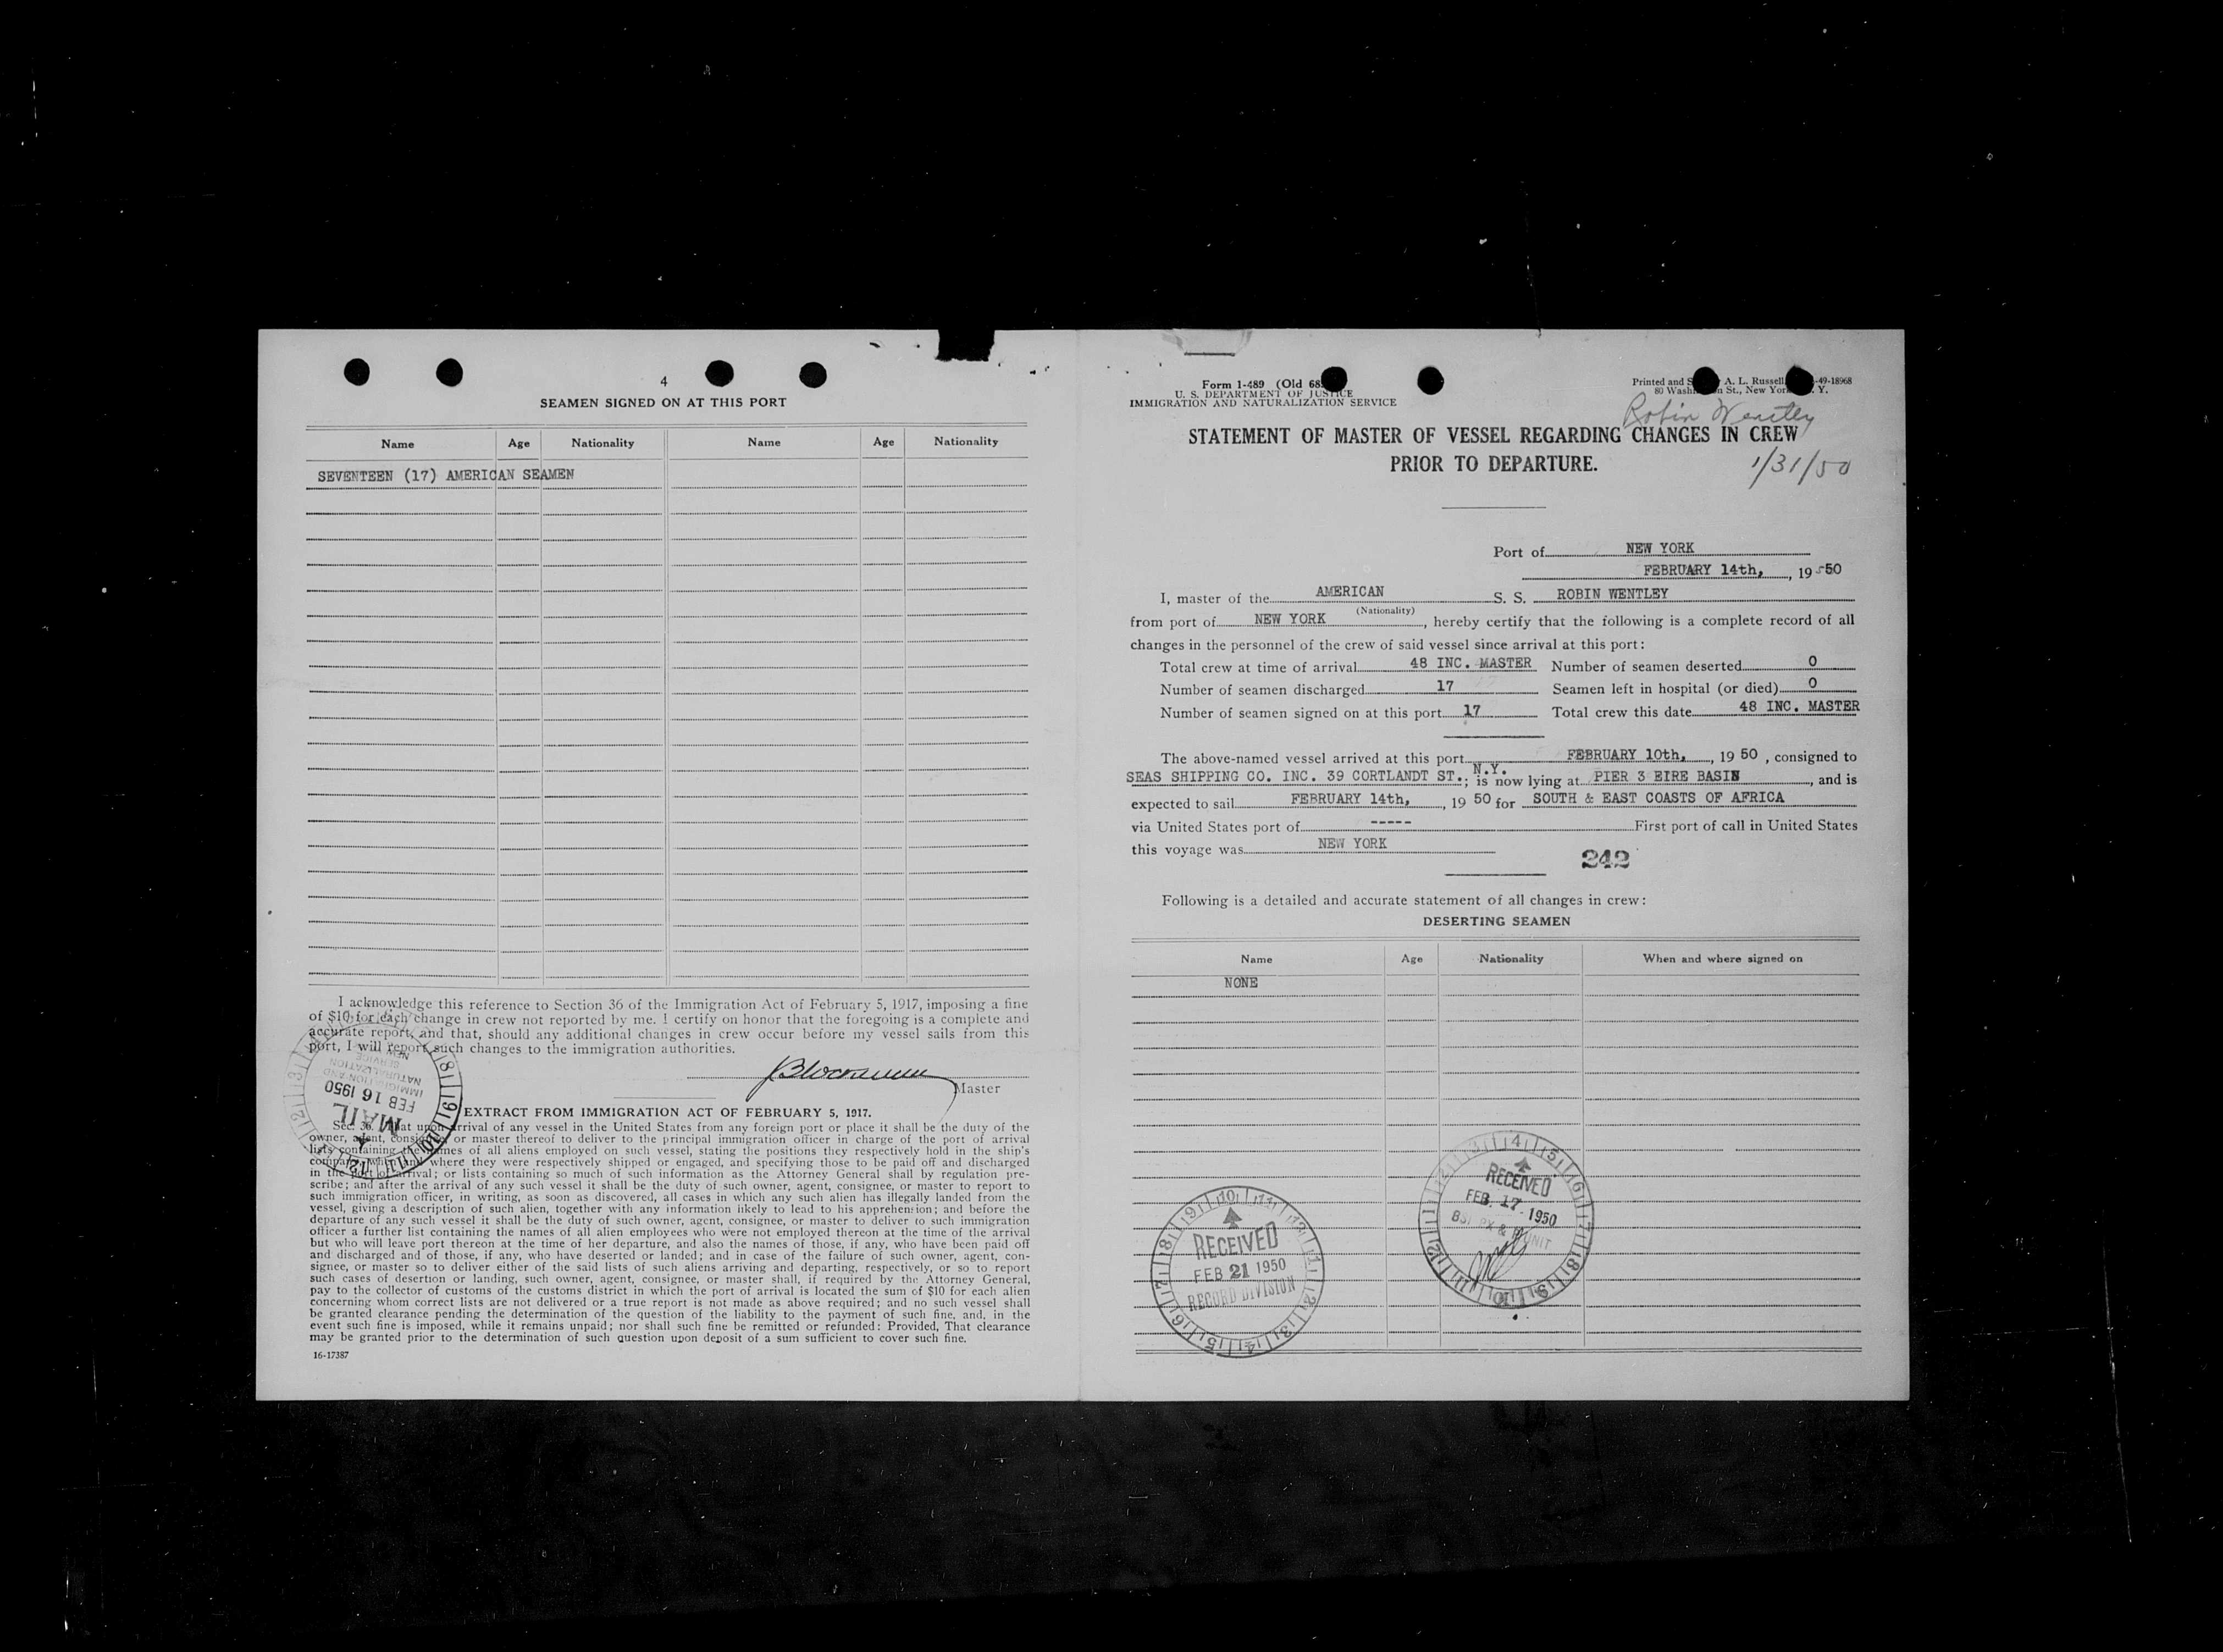 4
SEAMEN SIGNED ON AT THIS PORT
Name Age Nationality Name Age Nationality
SEVENTEEN (17) AMERICAN SEAMEN
I acknowledge this reference to Section 36 of the Immigration Act of February 5, 1917, imposing a fine
of $10 for each change in crew not reported by me. I certify on honor that the foregoing is a complete and
accurate report, and that, should any additional changes in crew occur before my vessel sails from this
port, I will report such changes to the immigration authorities.
Master
NEW
SERVICE
NATURALIZATION
IMMIGRATION AND
FEB 16 1950
MAIL
EXTRACT FROM IMMIGRATION ACT OF FEBRUARY 5, 1917.
Sec. 36. That upon arrival of any vessel in the United States from any foreign port or place it shall be the duty of the
owner, agent, consignee, or master thereof to deliver to the principal immigration officer in charge of the port of arrival
lists containing the names of all aliens employed on such vessel, stating the positions they respectively hold in the ship's
company, when and where they were respectively shipped or engaged, and specifying those to be paid off and discharged
in the port of arrival; or lists containing so much of such information as the Attorney General shall by regulation pre-
scribe; and after the arrival of any such vessel it shall be the duty of such owner, agent, consignee, or master to report to
such immigration officer, in writing, as soon as discovered, all cases in which any such alien has illegally landed from the
vessel, giving a description of such alien, together with any information likely to lead to his apprehension; and before the
departure of any such vessel it shall be the duty of such owner, agent, consignee, or master to deliver to such immigration
officer a further list containing the names of all alien employees who were not employed thereon at the time of the arrival
but who will leave port thereon at the time of her departure, and also the names of those, if any, who have been paid off
and discharged and of those, if any, who have deserted or landed; and in case of the failure of such owner, agent, con-
signee, or master so to deliver either of the said lists of such aliens arriving and departing, respectively, or so to report
such cases of desertion or landing, such owner, agent, consignee, or master shall, if required by the Attorney General,
pay to the collector of customs of the customs district in which the port of arrival is located the sum of $10 for each alien
concerning whom correct lists are not delivered or a true report is not made as above required; and no such vessel shall
be granted clearance pending the determination of the question of the liability to the payment of such fine, and, in the
event such fine is imposed, while it remains unpaid; nor shall such fine be remitted or refunded: Provided, That clearance
may be granted prior to the determination of such question upon deposit of a sum sufficient to cover such fine.
16-17387
Form 1-489 (Old 68
U. S. DEPARTMENT OF JUSTICE
IMMIGRATION AND NATURALIZATION SERVICE
Printed and S A. L. Russell, -49-18968
80 Wash n St., New York, . Y.
Robin Wentley
STATEMENT OF MASTER OF VESSEL REGARDING CHANGES IN CREW
PRIOR TO DEPARTURE.
1/31/50
Port of NEW YORK
FEBRUARY 14th, , 19 50
I, master of the AMERICAN S. S. ROBIN WENTLEY
(Nationality)
from port of NEW YORK , hereby certify that the following is a complete record of all
changes in the personnel of the crew of said vessel since arrival at this port:
Total crew at time of arrival 48 INC. MASTER Number of seamen deserted 0
Number of seamen discharged 17 Seamen left in hospital (or died) 0
Number of seamen signed on at this port 17 Total crew this date 48 INC. MASTER
The above-named vessel arrived at this port FEBRUARY 10th, , 19 50 , consigned to
SEAS SHIPPING CO. INC. 39 CORTLANDT ST. N.Y. ; is now lying at PIER 3 EIRE BASIN , and is
expected to sail FEBRUARY 14th, , 19 50 for SOUTH & EAST COASTS OF AFRICA
via United States port of ----- First port of call in United States
this voyage was NEW YORK
242
Following is a detailed and accurate statement of all changes in crew:
DESERTING SEAMEN
Name Age Nationality When and where signed on
NONE
RECEIVED
FEB. 17. 1950
UNIT
RECEIVED
FEB 21 1950
RECORD DIVISION